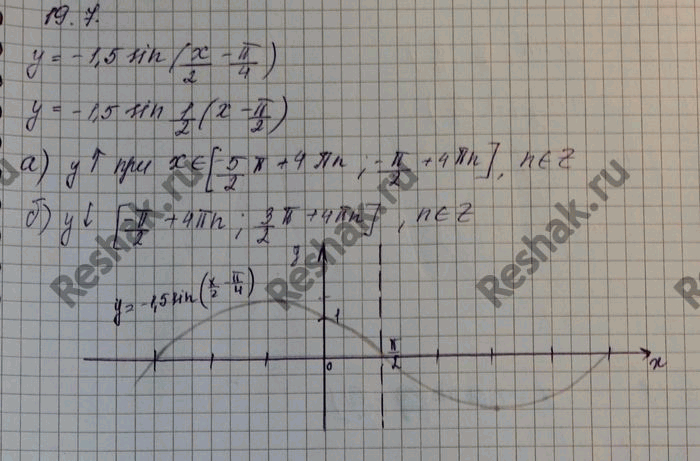 19.7.
y = -1,5 sin(x/2 - π/4)
y = -1,5 sin 1/2 (x - π/2)
а) y↑ при x∈[-5/2 π + 4πn ; -π/2 + 4πn], n∈Z
б) y↓ [-π/2 + 4πn ; 3/2 π + 4πn], n∈Z
y
y = -1,5 sin(x/2 - π/4)
1
0
π/2
x
Reshak.ru
Reshak.ru
Reshak.ru